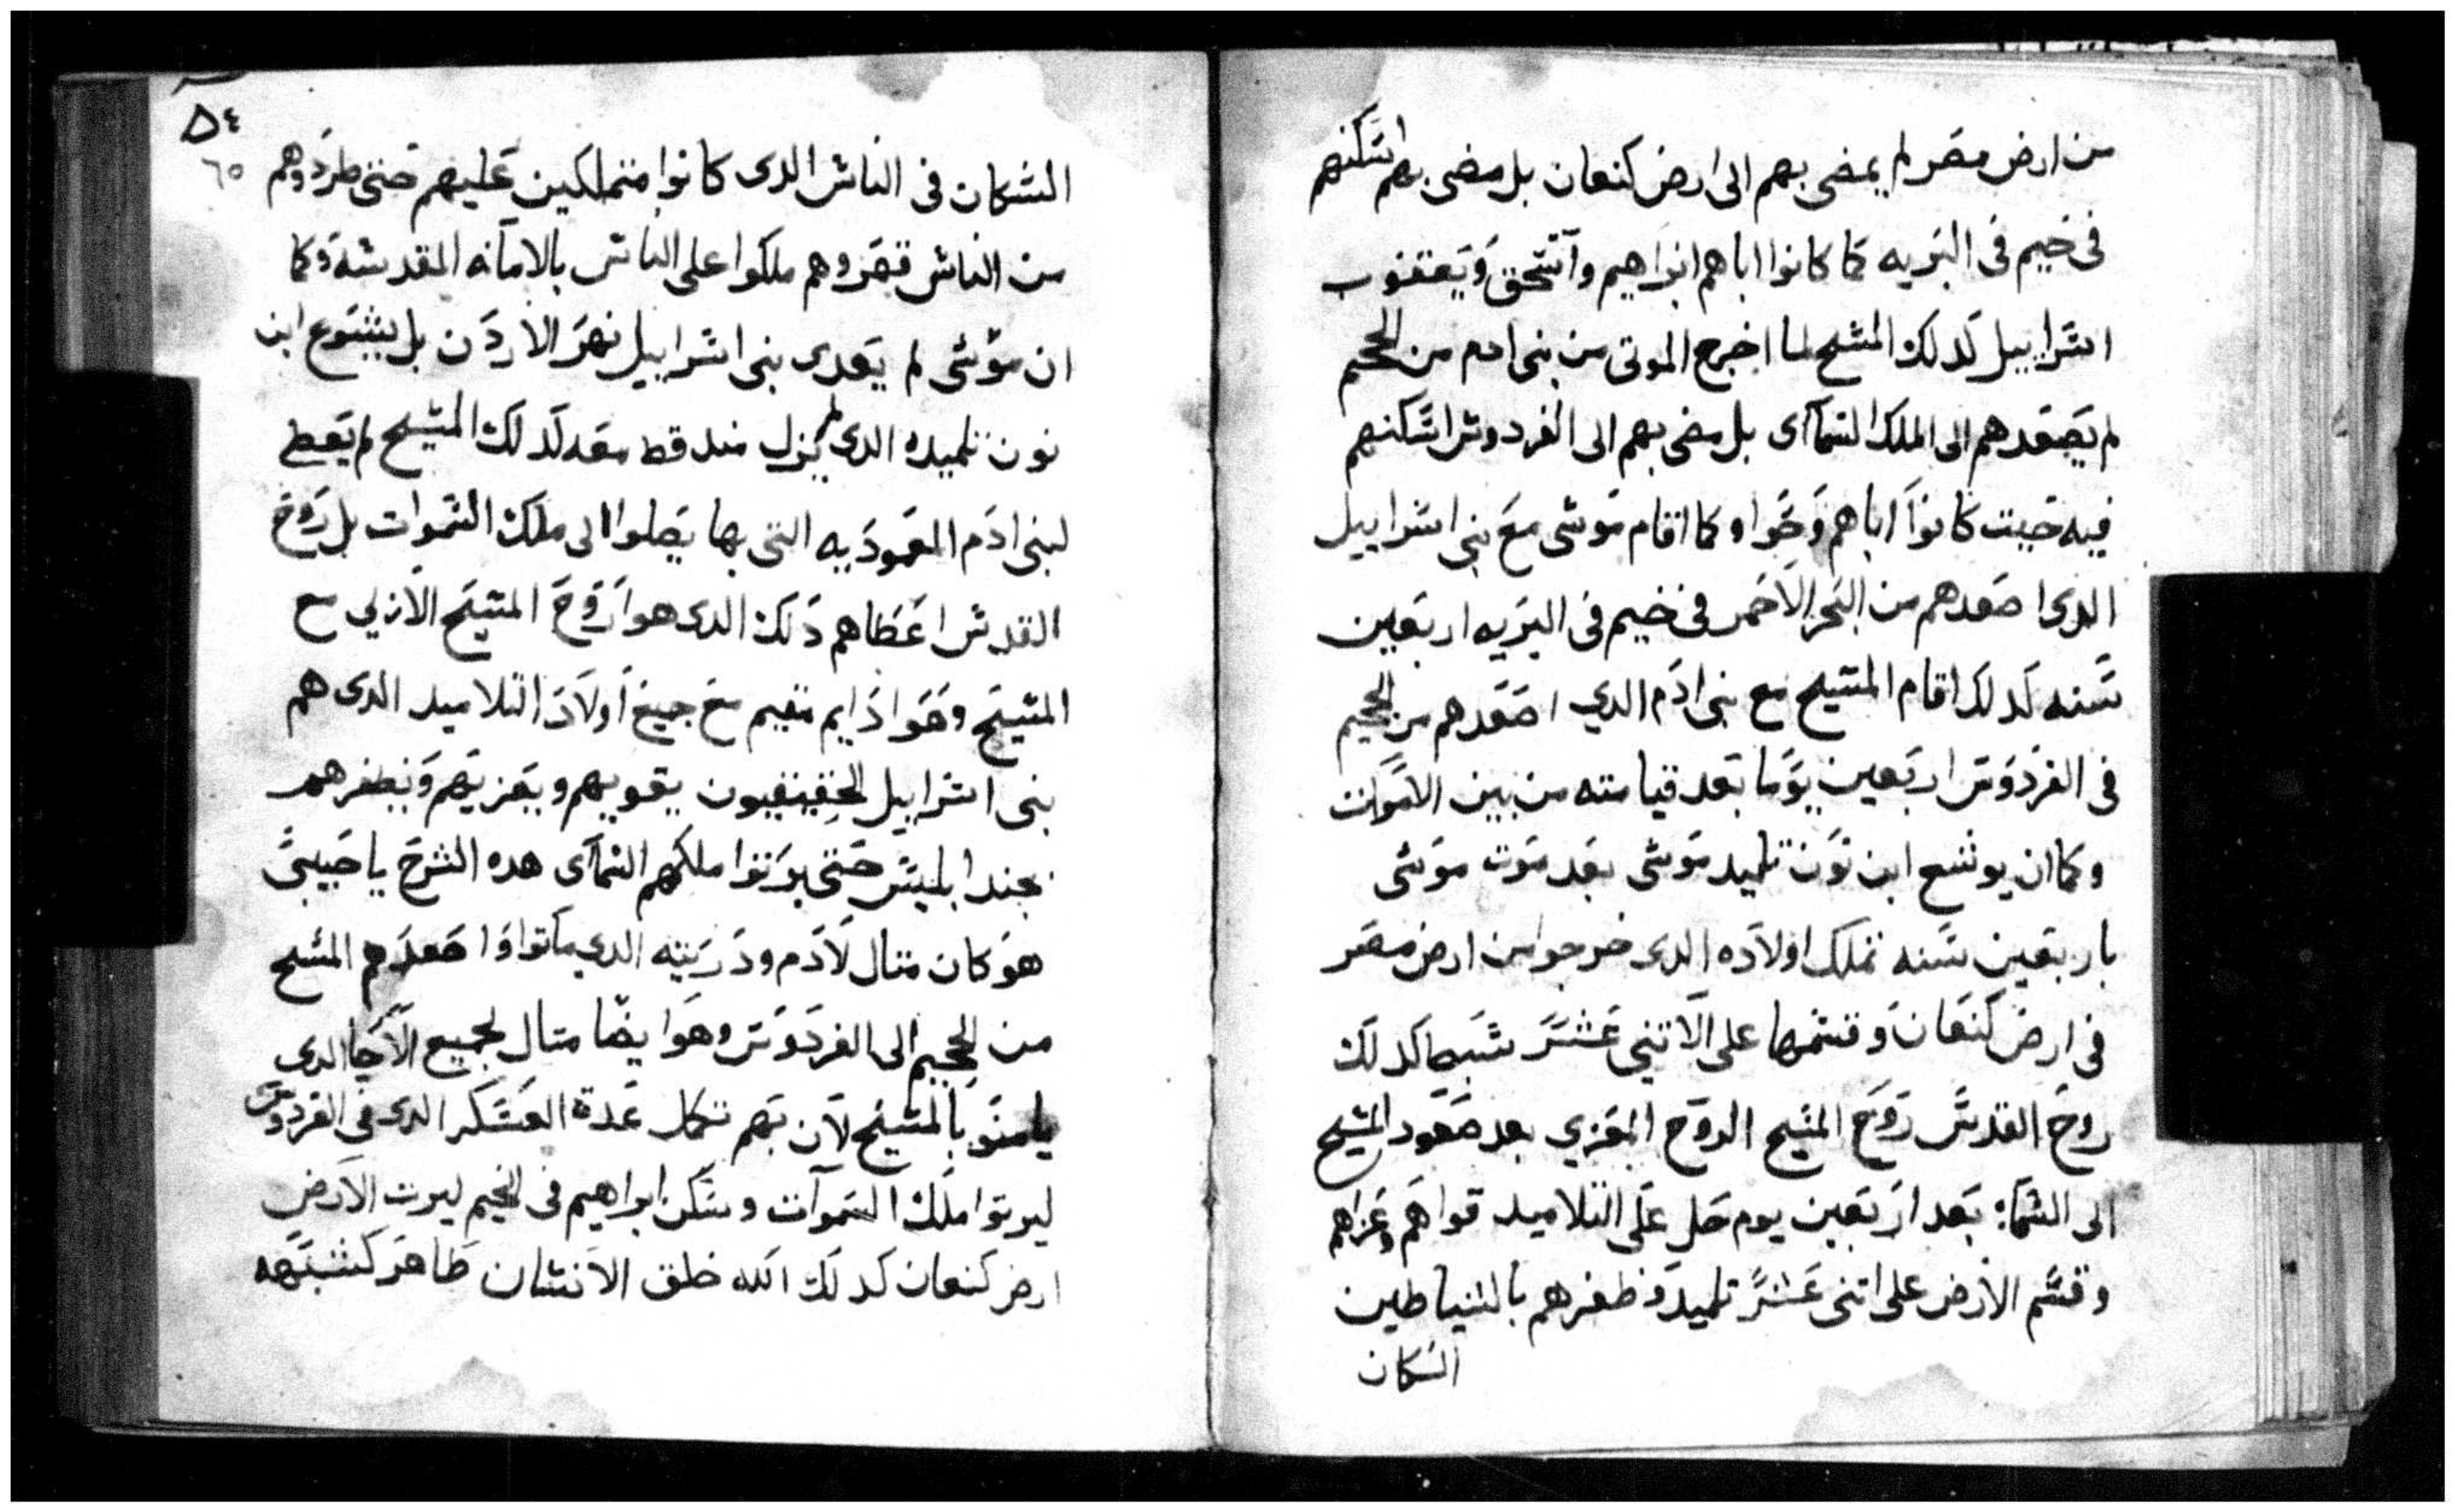 من ارض مصر لم يمضى بهم الى ارض كنعان بل مضى بهم اسكنهم
فى خيم فى البريه كما كانوا اباهم ابراهيم واسحق ويعقوب
اسراييل كدلك المسيح لما اخرج الموتى من بنى ادم من الجحيم
لم يصعدهم الى الملك السمآى بل مضى بهم الى الفردوس اسكنهم
فيه حيت كانوا اباهم وحوا وكما اقام موسى مع بنى اسراييل
الدى اصعدهم من البحر الاحمر فى خيم فى البريه اربعين
سنه كدلك اقام المسيح مع بنى ادم الدي اصعدهم من الجحيم
فى الفردوس اربعين يوما بعد قيامته من بين الاموات
وكما ان يوشع ابن نون تلميد موسى بعد موت موسى
باربعين سنه تملك اولاده الدى خرجوا من ارض مصر
فى ارض كنعان وقسمها على الاتنى عشر سبط كدلك
روح القدس روح المسيح الروح المعزي بعد صعود المسيح
الى السما: بعد اربعين يوم حل على التلاميد قواهم وعزاهم
وقسم الارض على اتنى عشر تلميد وظفرهم بالشياطين
السكان
٥٤
٦٥
السكان فى الناس الدى كانوا متملكين عليهم حتى طردوهم
من الناس قهروهم ملكوا على الناس بالامانه المقدسه وكما
ان موسى لم يعدى بنى اسراييل نهر الاردن بل يشوع ابن
نون تلميده الدى لم يزل مند قط معه كدلك المسيح لم يعطى
لبنى ادم المعموديه التى بها يصلوا الى ملك السموات بل روح
القدس اعطاهم دلك الدى هوا روح المسيح الازلي مع
المسيح وهوا دايم مقيم مع جميع اولاد التلاميد الدى هم
بنى اسراييل الحقيقيون يقويهم ويعزيهم ويظفرهم
بجند ابليس حتى يورتوا ملكهم السمآى هده الشرح يا حبيبى
هو كان متال لادم ودريته الدي ماتوا واصعدهم المسيح
من الجحيم الى الفردوس وهوا يضا متال لجميع الاحيا الدي
يامنو بالمسيح لان بهم تكمل عدة العسكر الدى فى الفردوس
ليرتوا ملك السموات وسكن ابراهيم فى الخيم ليرت الارض
ارض كنعان كدلك الله خلق الانسان طاهر كشبهه